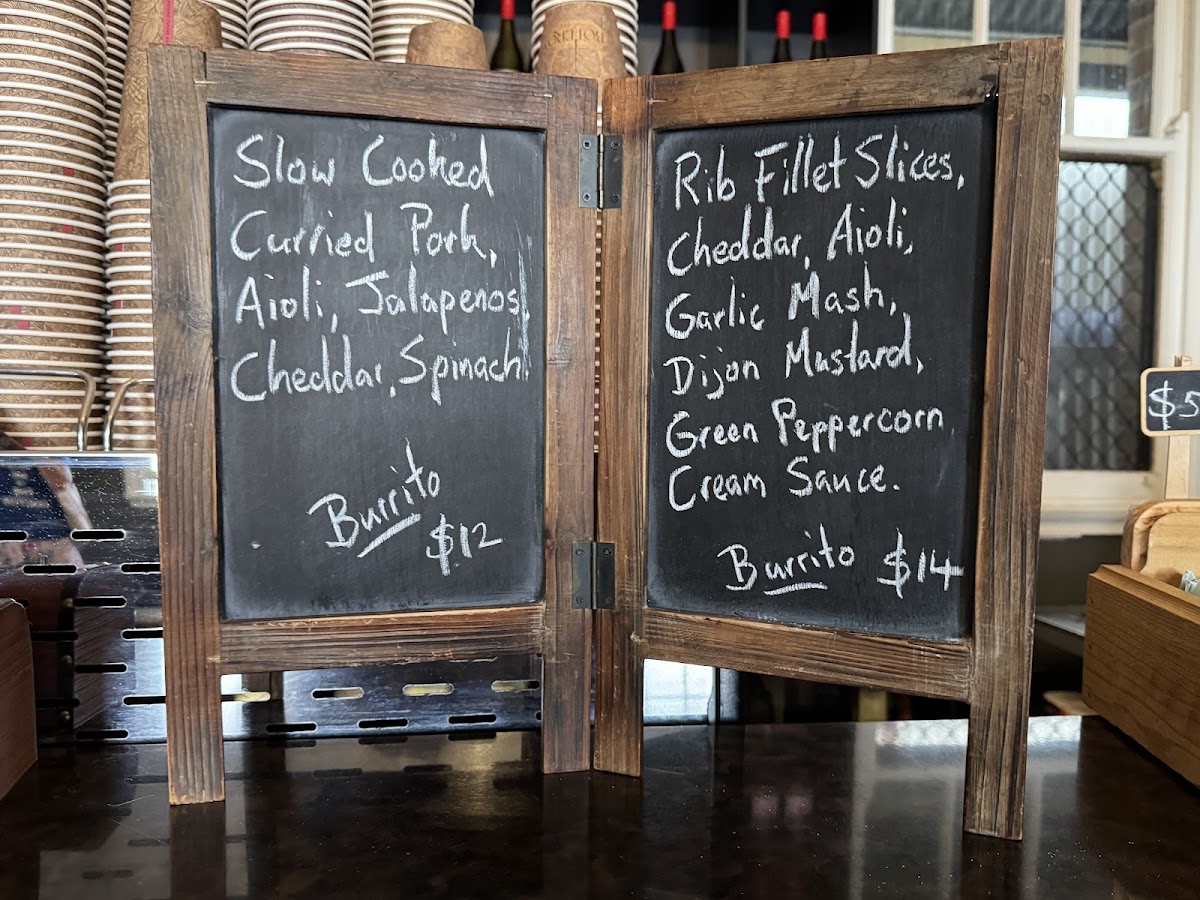 Slow Cooked
Curried Pork,
Aioli, Jalapenos,
Cheddar, Spinach.
Burrito
$12
Rib Fillet Slices,
Cheddar, Aioli,
Garlic Mash,
Dijon Mustard,
Green Peppercorn
Cream Sauce.
Burrito $14